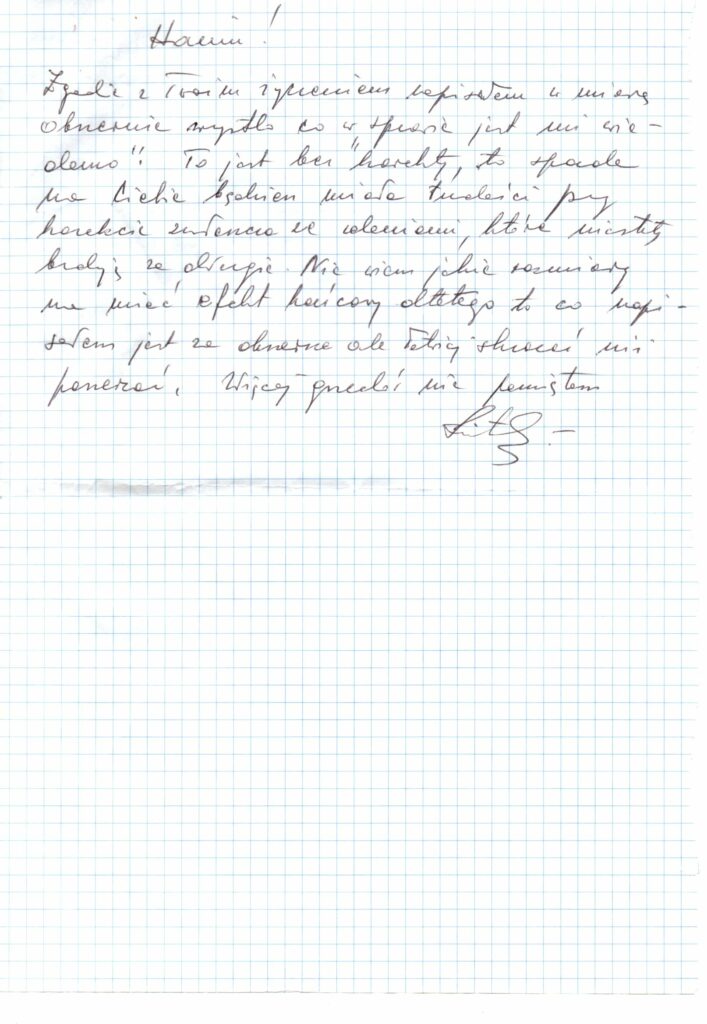 Haniu!
Zgodnie z Twoim życzeniem napisałem w miarę
obszernie wszystko co w „sprawie jest mi wia-
domo". To jest bez korekty, to spada
na Ciebie będziesz miała trudności przy
korekcie zwłaszcza ze zdaniami, które niestety
bywają za długie. Nie wiem jakie rozmiary
ma mieć efekt końcowy dlatego to co napi-
sałem jest za obszerne ale łatwiej skracać niż
poszerzać. Więcej grzechów nie pamiętam